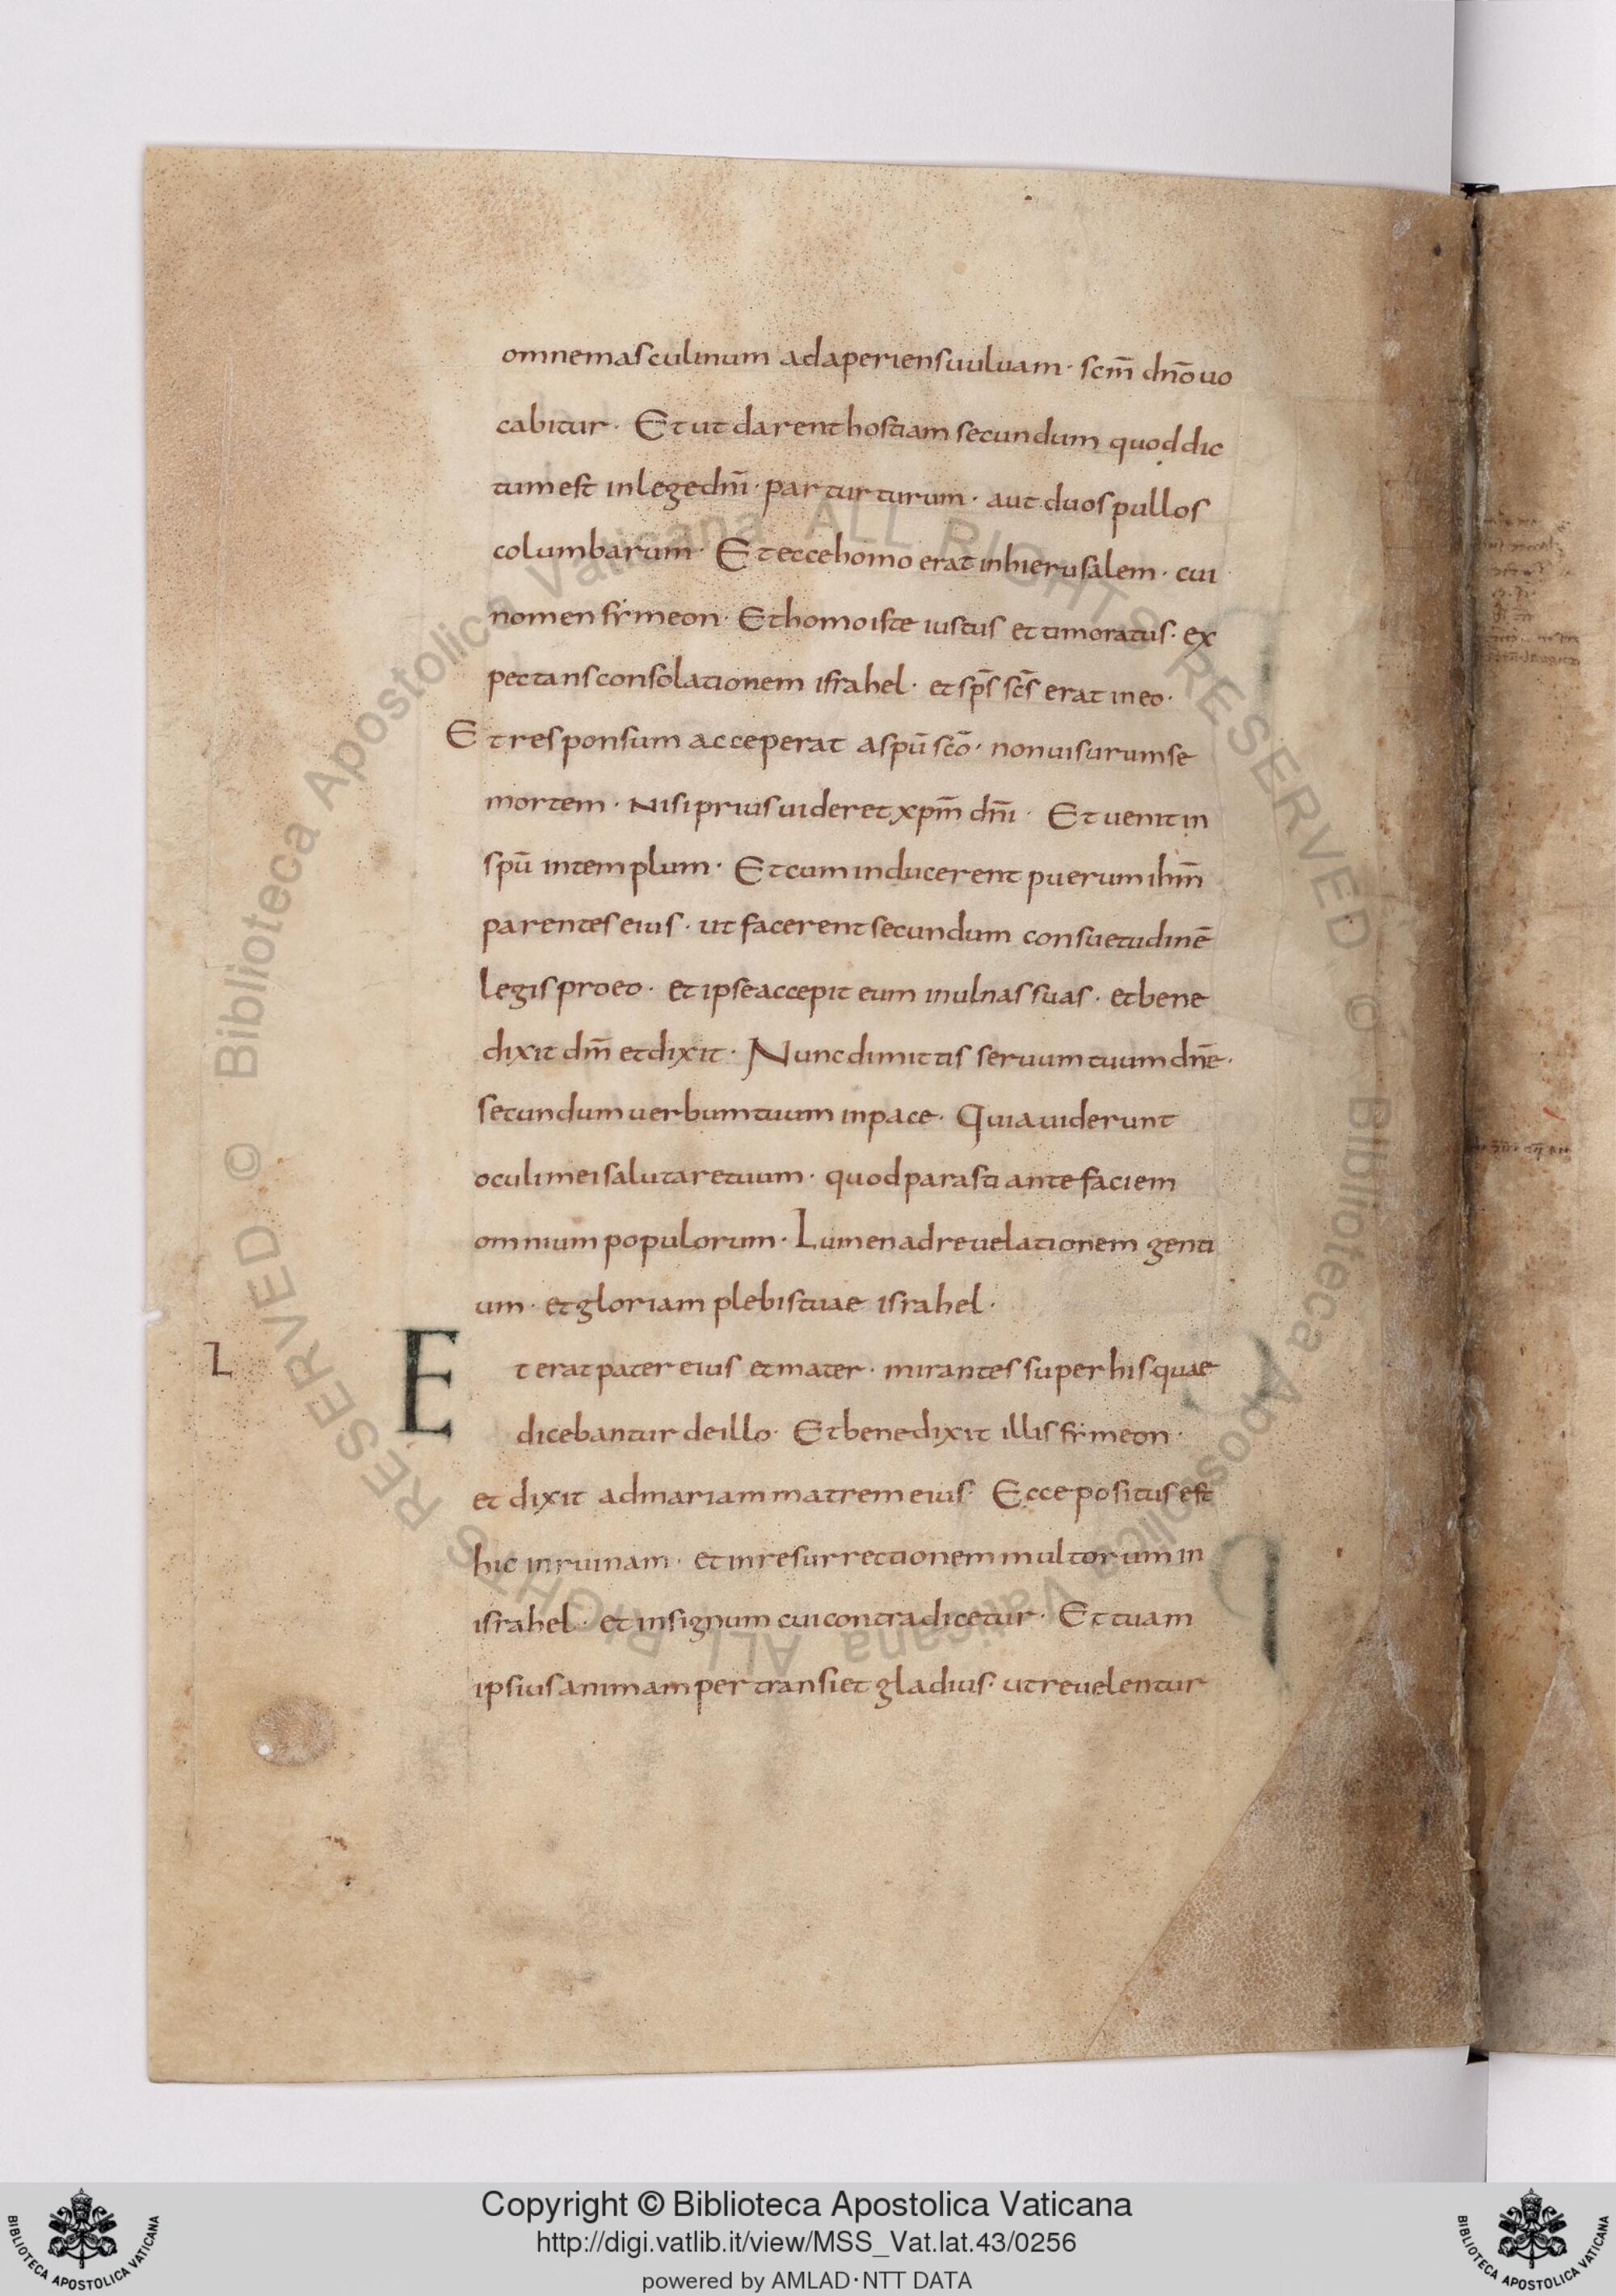 omnemasculinum adaperiensuuluam · scm̄ dn̄o uo
cabitur · Et ut darent hostiam secundum quod dic
tum est in lege dn̄i · par turturum · aut duos pullos
columbarum · Et ecce homo erat in hierusalem · cui
nomen sẏmeon · Et homo iste iustus et timoratus · ex
pectans consolationem israhel · et sp̄s sc̄s erat in eo ·
Et responsum acceperat a spū scō · non uisurum se
mortem · Nisi prius uideret xpm̄ dn̄i · Et uenit in
spū in templum · Et cum inducerent puerum ihm̄
parentes eius · ut facerent secundum consuetudinē
legis pro eo · et ipse accepit eum in ulnas suas · et bene
dixit dm̄ et dixit · Nunc dimittis seruum tuum dn̄e ·
secundum uerbum tuum in pace · Quia uiderunt
oculi mei salutare tuum · quod parasti ante faciem
omnium populorum · Lumen ad reuelationem genti
um · et gloriam plebis tuae israhel ·
L Et erat pater eius et mater · mirantes super his quae
dicebantur de illo · Et benedixit illis sẏmeon ·
et dixit ad mariam matrem eius · Ecce positus est
hic in ruinam · et in resurrectionem multorum in
israhel · et in signum cui contradicetur · Et tuam
ipsius animam pertransiet gladius · ut reuelentur
Biblioteca Apostolica Vaticana ALL RIGHTS RESERVED © Biblioteca Apostolica Vaticana ALL RIGHTS RESERVED ©
Copyright © Biblioteca Apostolica Vaticana
http://digi.vatlib.it/view/MSS_Vat.lat.43/0256
powered by AMLAD·NTT DATA
BIBLIOTECA APOSTOLICA VATICANA
BIBLIOTECA APOSTOLICA VATICANA